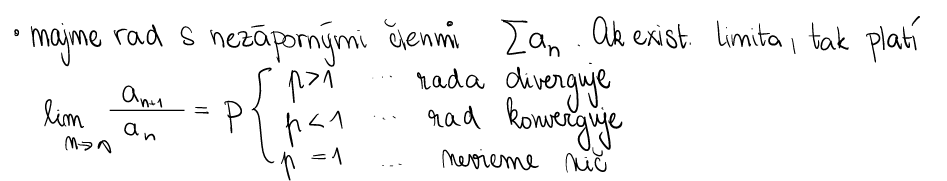 • majme rad s nezápornými členmi ∑aₙ. Ak exist. limita, tak platí
lim n→∞ aₙ₊₁ / aₙ = P { p>1 ... rada diverguje
p<1 ... rad konverguje
p=1 ... nevieme nič